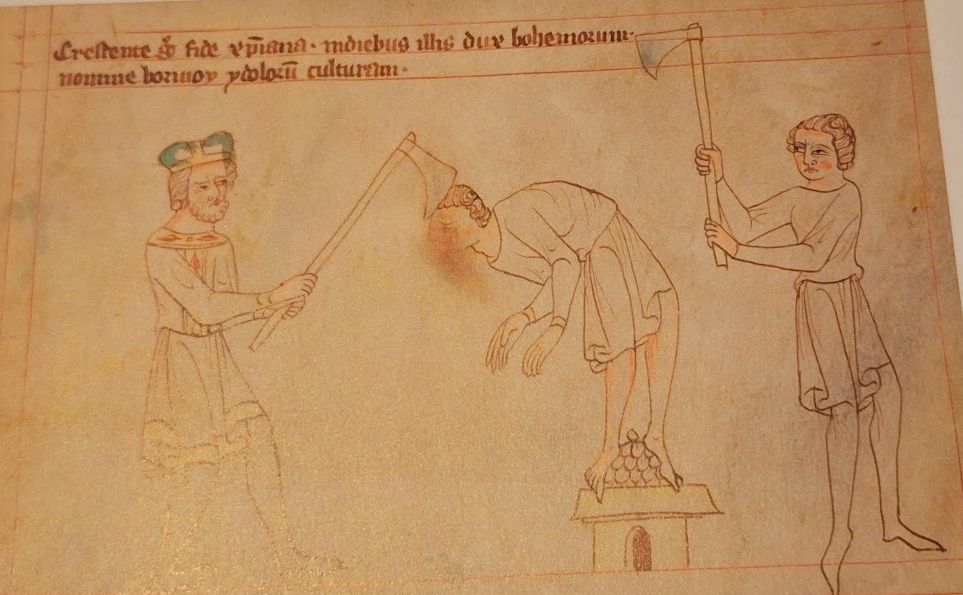 Crescente g̅ fide xp̅iana · indiebus illis dux bohemorum·
nomine borivoy ydoloru̅ culturam·